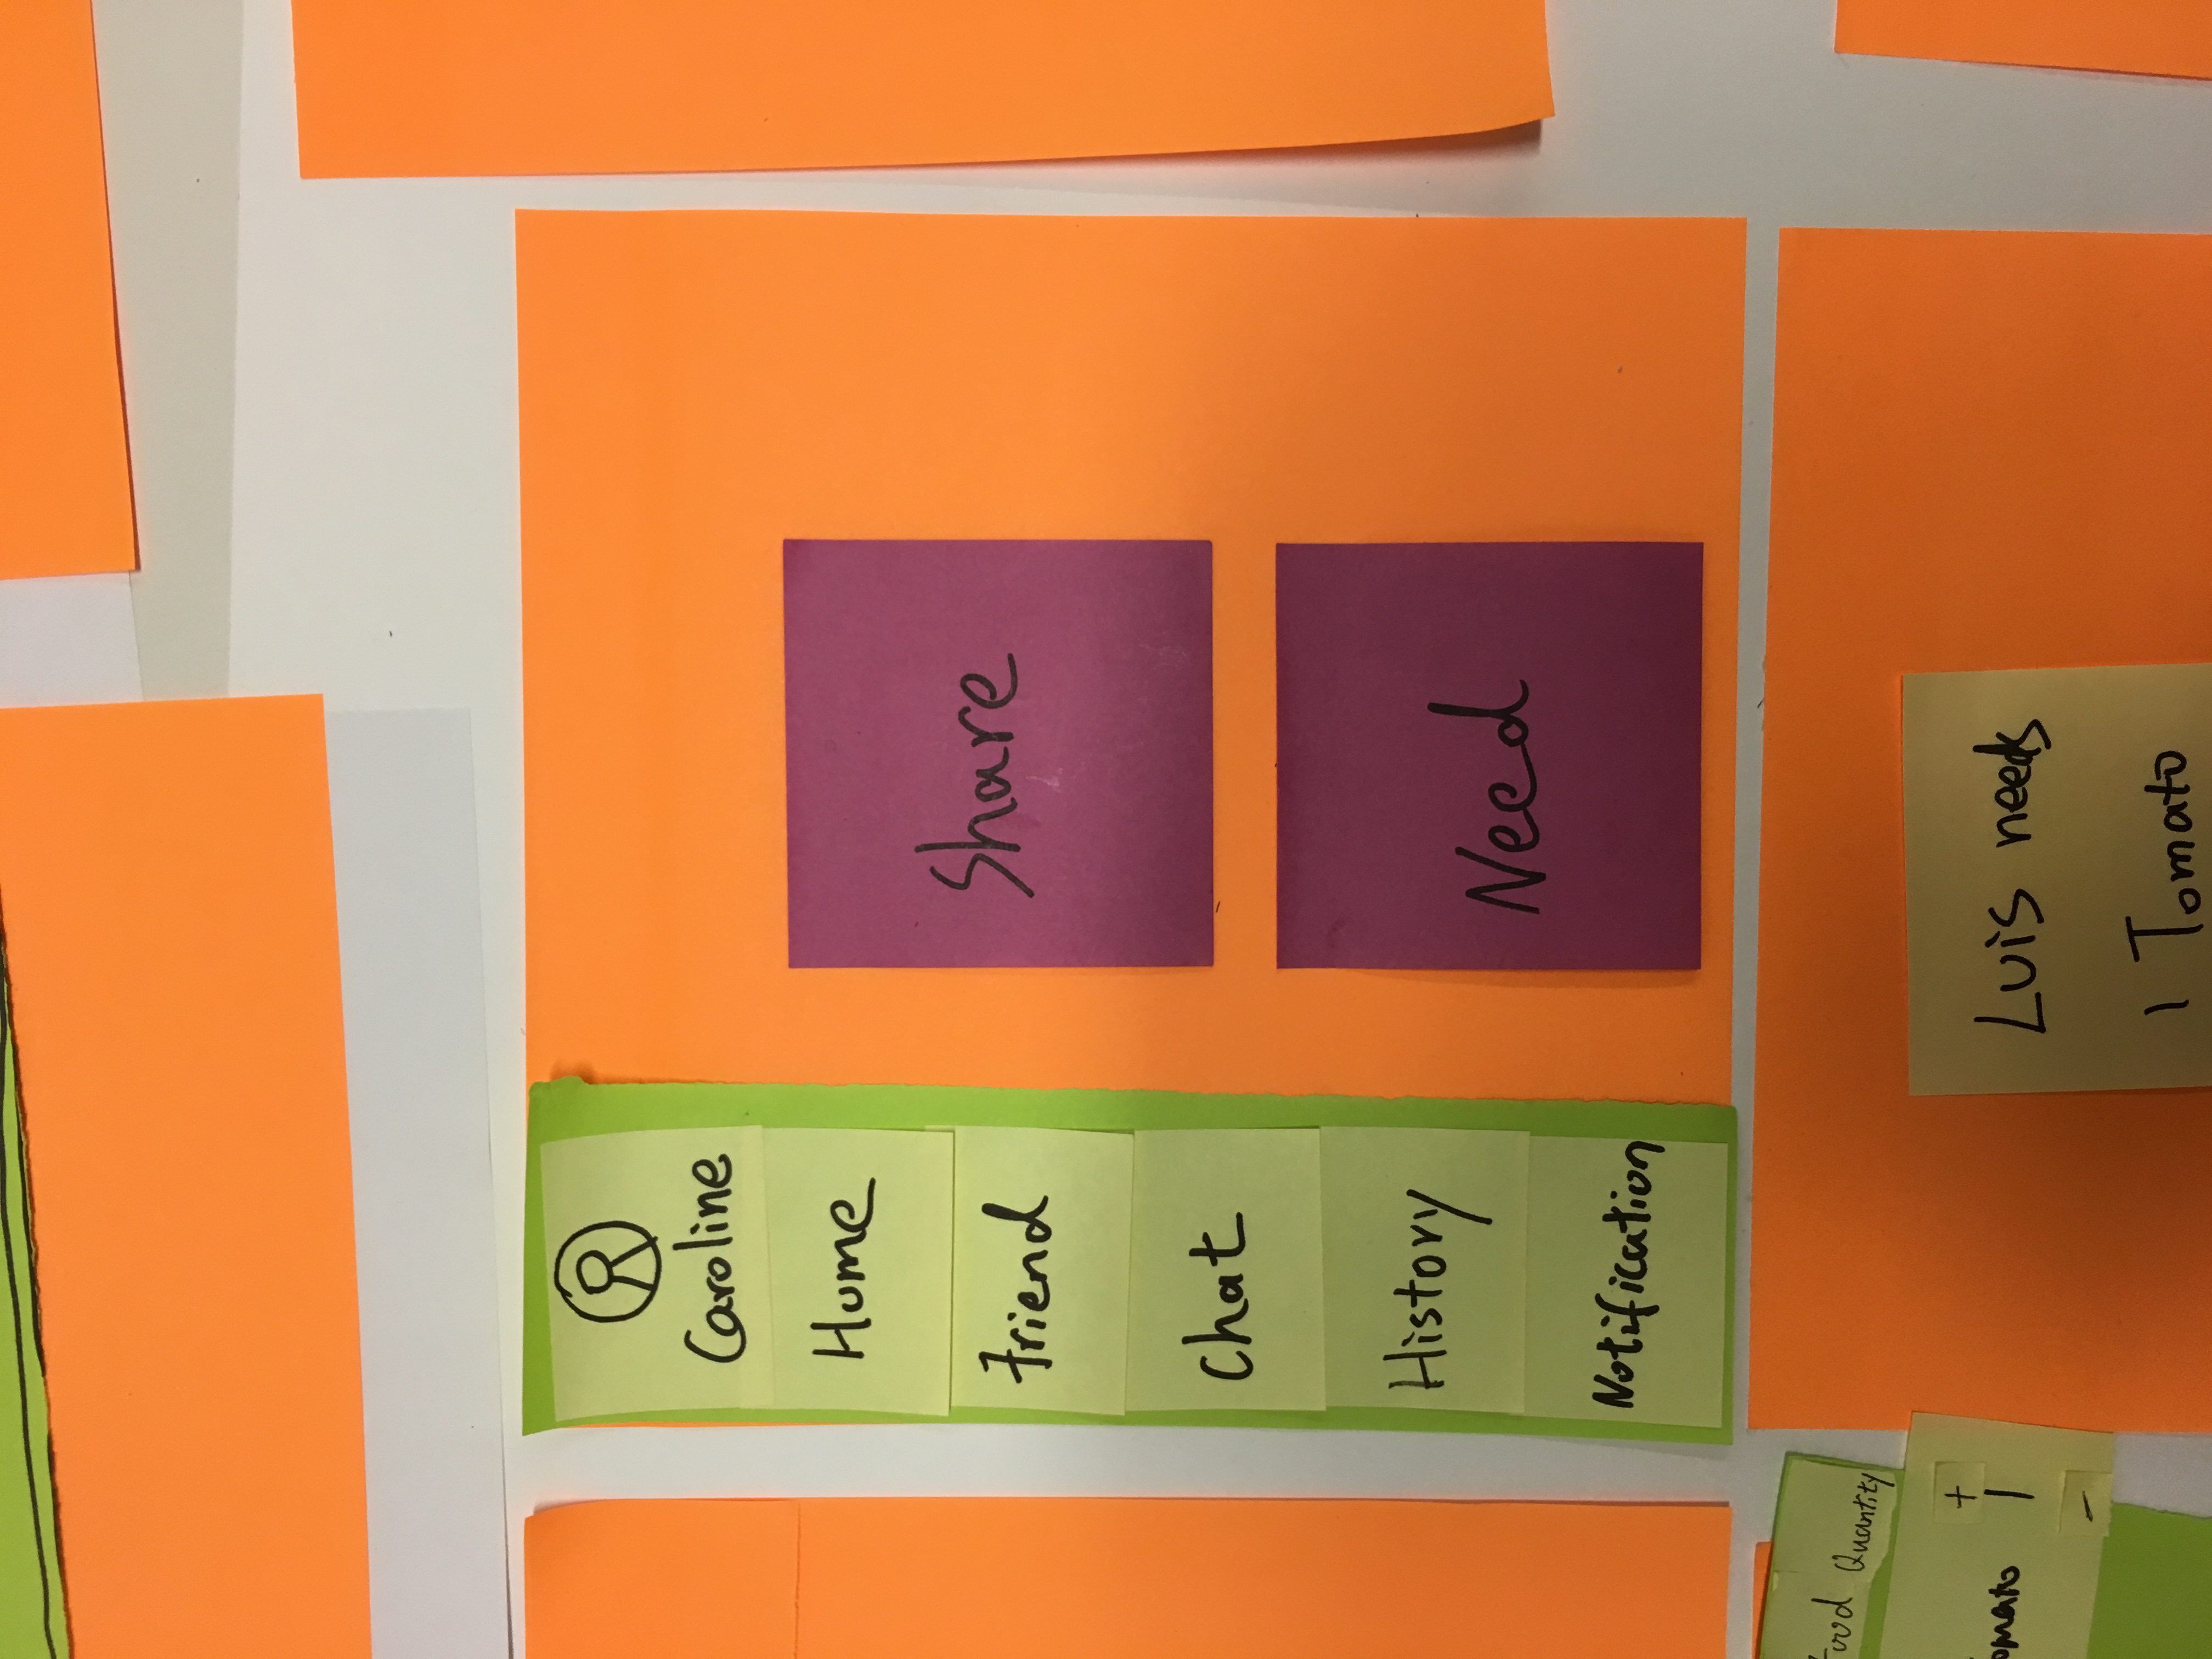 Caroline
Home
Friend
Chat
History
Notification
Share
Need
Food Quantity
+
Tomato 1
-
Luis needs
1 Tomato